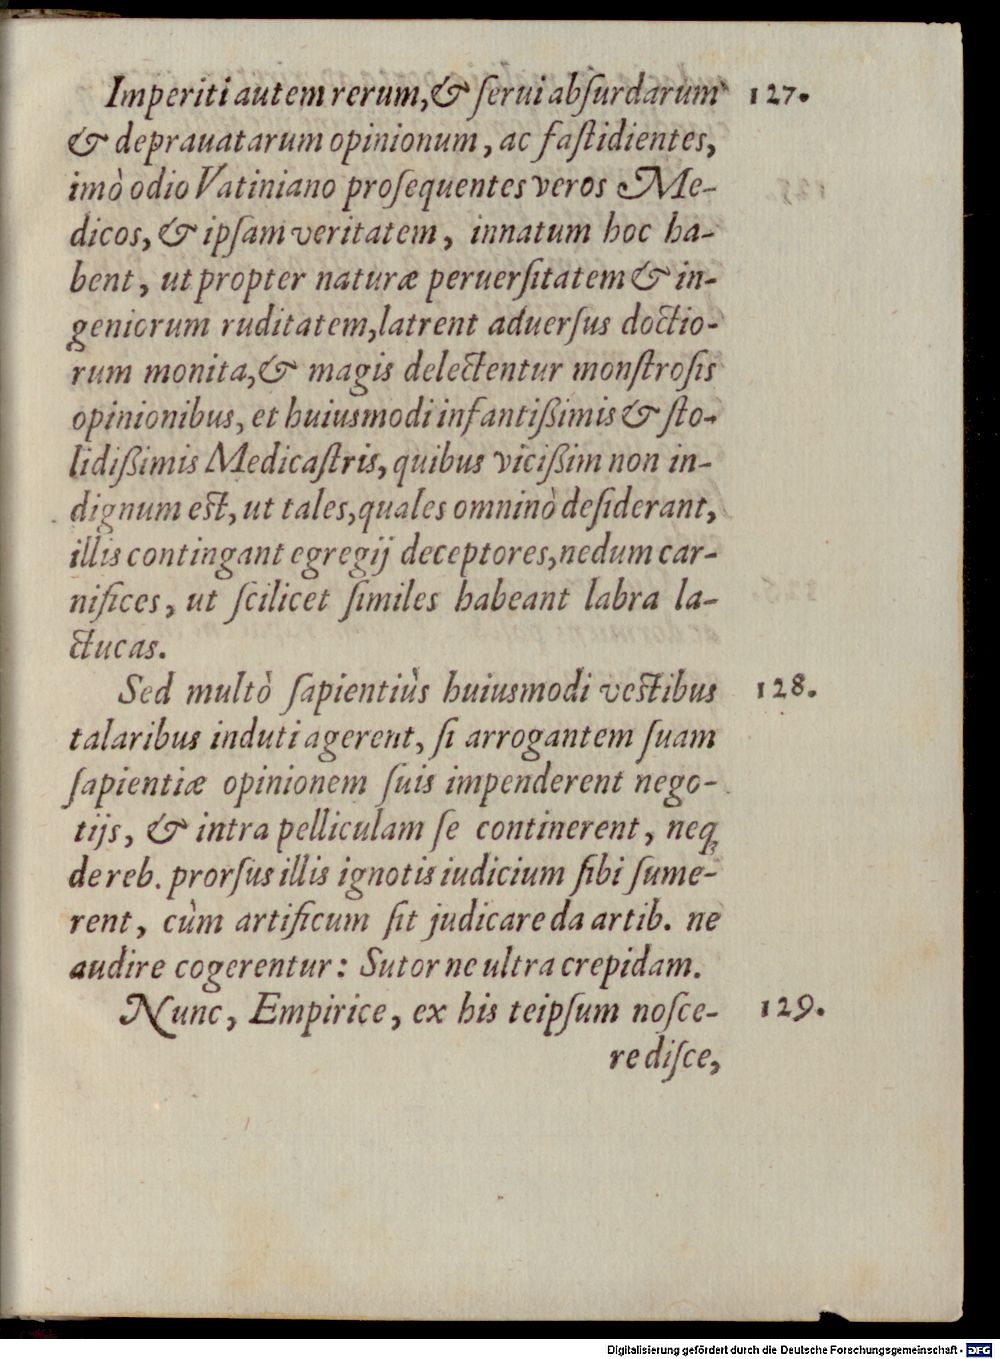 Imperiti autem rerum, & ſerui abſurdarum 127.
& deprauatarum opinionum, ac faſtidientes,
imò odio Vatiniano proſequentes veros Me-
dicos, & ipſam veritatem, innatum hoc ha-
bent, ut propter naturæ peruerſitatem & in-
geniorum ruditatem, latrent aduerſus doctio-
rum monita, & magis delectentur monſtroſis
opinionibus, et huiusmodi infantißimis & ſto-
lidißimis Medicaſtris, quibus vicißim non in-
dignum est, ut tales, quales omninò deſiderant,
illis contingant egregij deceptores, nedum car-
nifices, ut ſcilicet ſimiles habeant labra la-
ctucas.
Sed multò ſapientiùs huiusmodi vestibus 128.
talaribus induti agerent, ſi arrogantem ſuam
ſapientiæ opinionem ſuis impenderent nego-
tijs, & intra pelliculam ſe continerent, neq;
de reb. prorſus illis ignotis iudicium ſibi ſume-
rent, cùm artificum ſit judicare da artib. ne
audire cogerentur: Sutor ne ultra crepidam.
Nunc, Empirice, ex his teipſum noſce- 129.
re diſce,
Digitalisierung gefördert durch die Deutsche Forschungsgemeinschaft - DFG